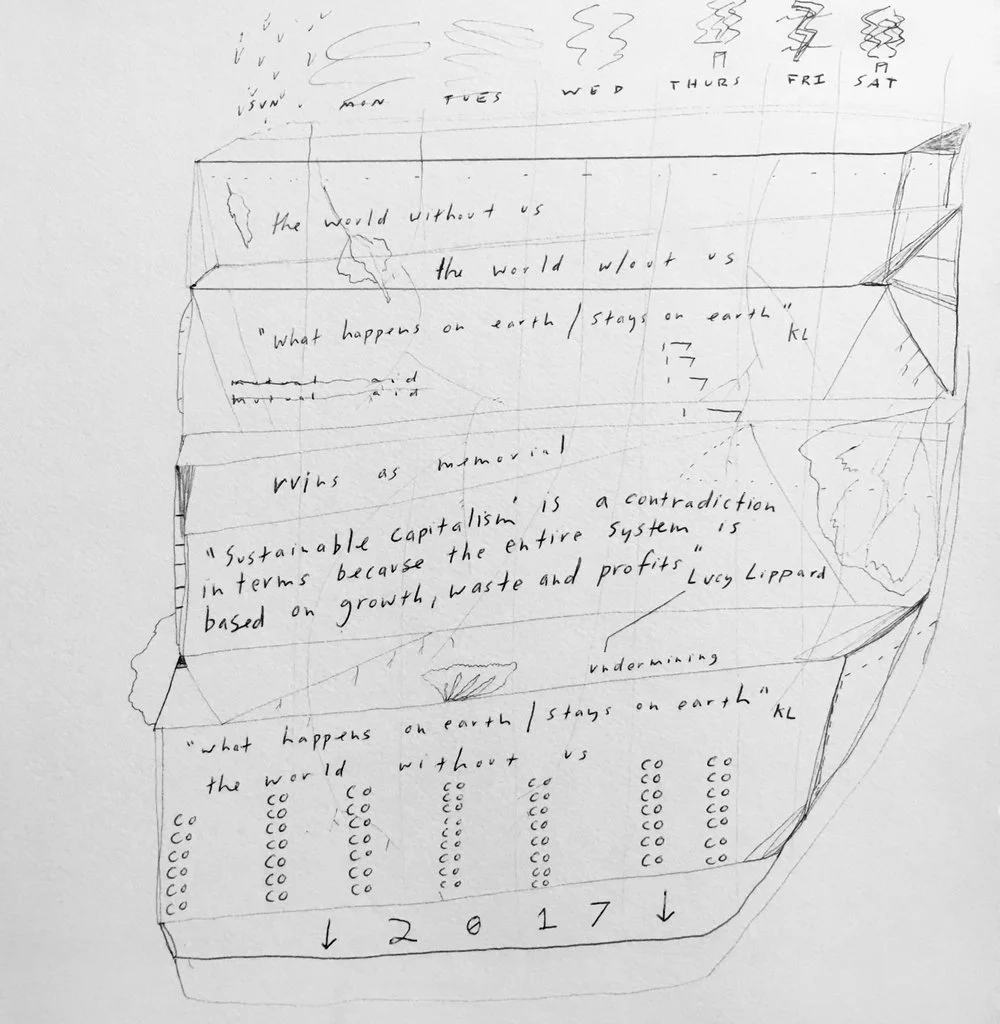 SUN MON TUES WED THURS FRI SAT
the world without us
the world w/out us
"What happens on earth / stays on earth" KL
17
17
17
17
mutual aid
mutual aid
rvins as memorial
"Sustainable Capitalism' is a contradiction
in terms because the entire system is
based on growth, waste and profits"
Lucy Lippard
undermining
"what happens on earth / stays on earth"
KL
the world without us
CO CO CO CO CO CO CO
CO CO CO CO CO CO CO
CO CO CO CO CO CO CO
CO CO CO CO CO CO CO
CO CO CO CO CO CO CO
CO CO CO CO CO CO CO
CO CO CO CO CO CO
↓ 2017 ↓